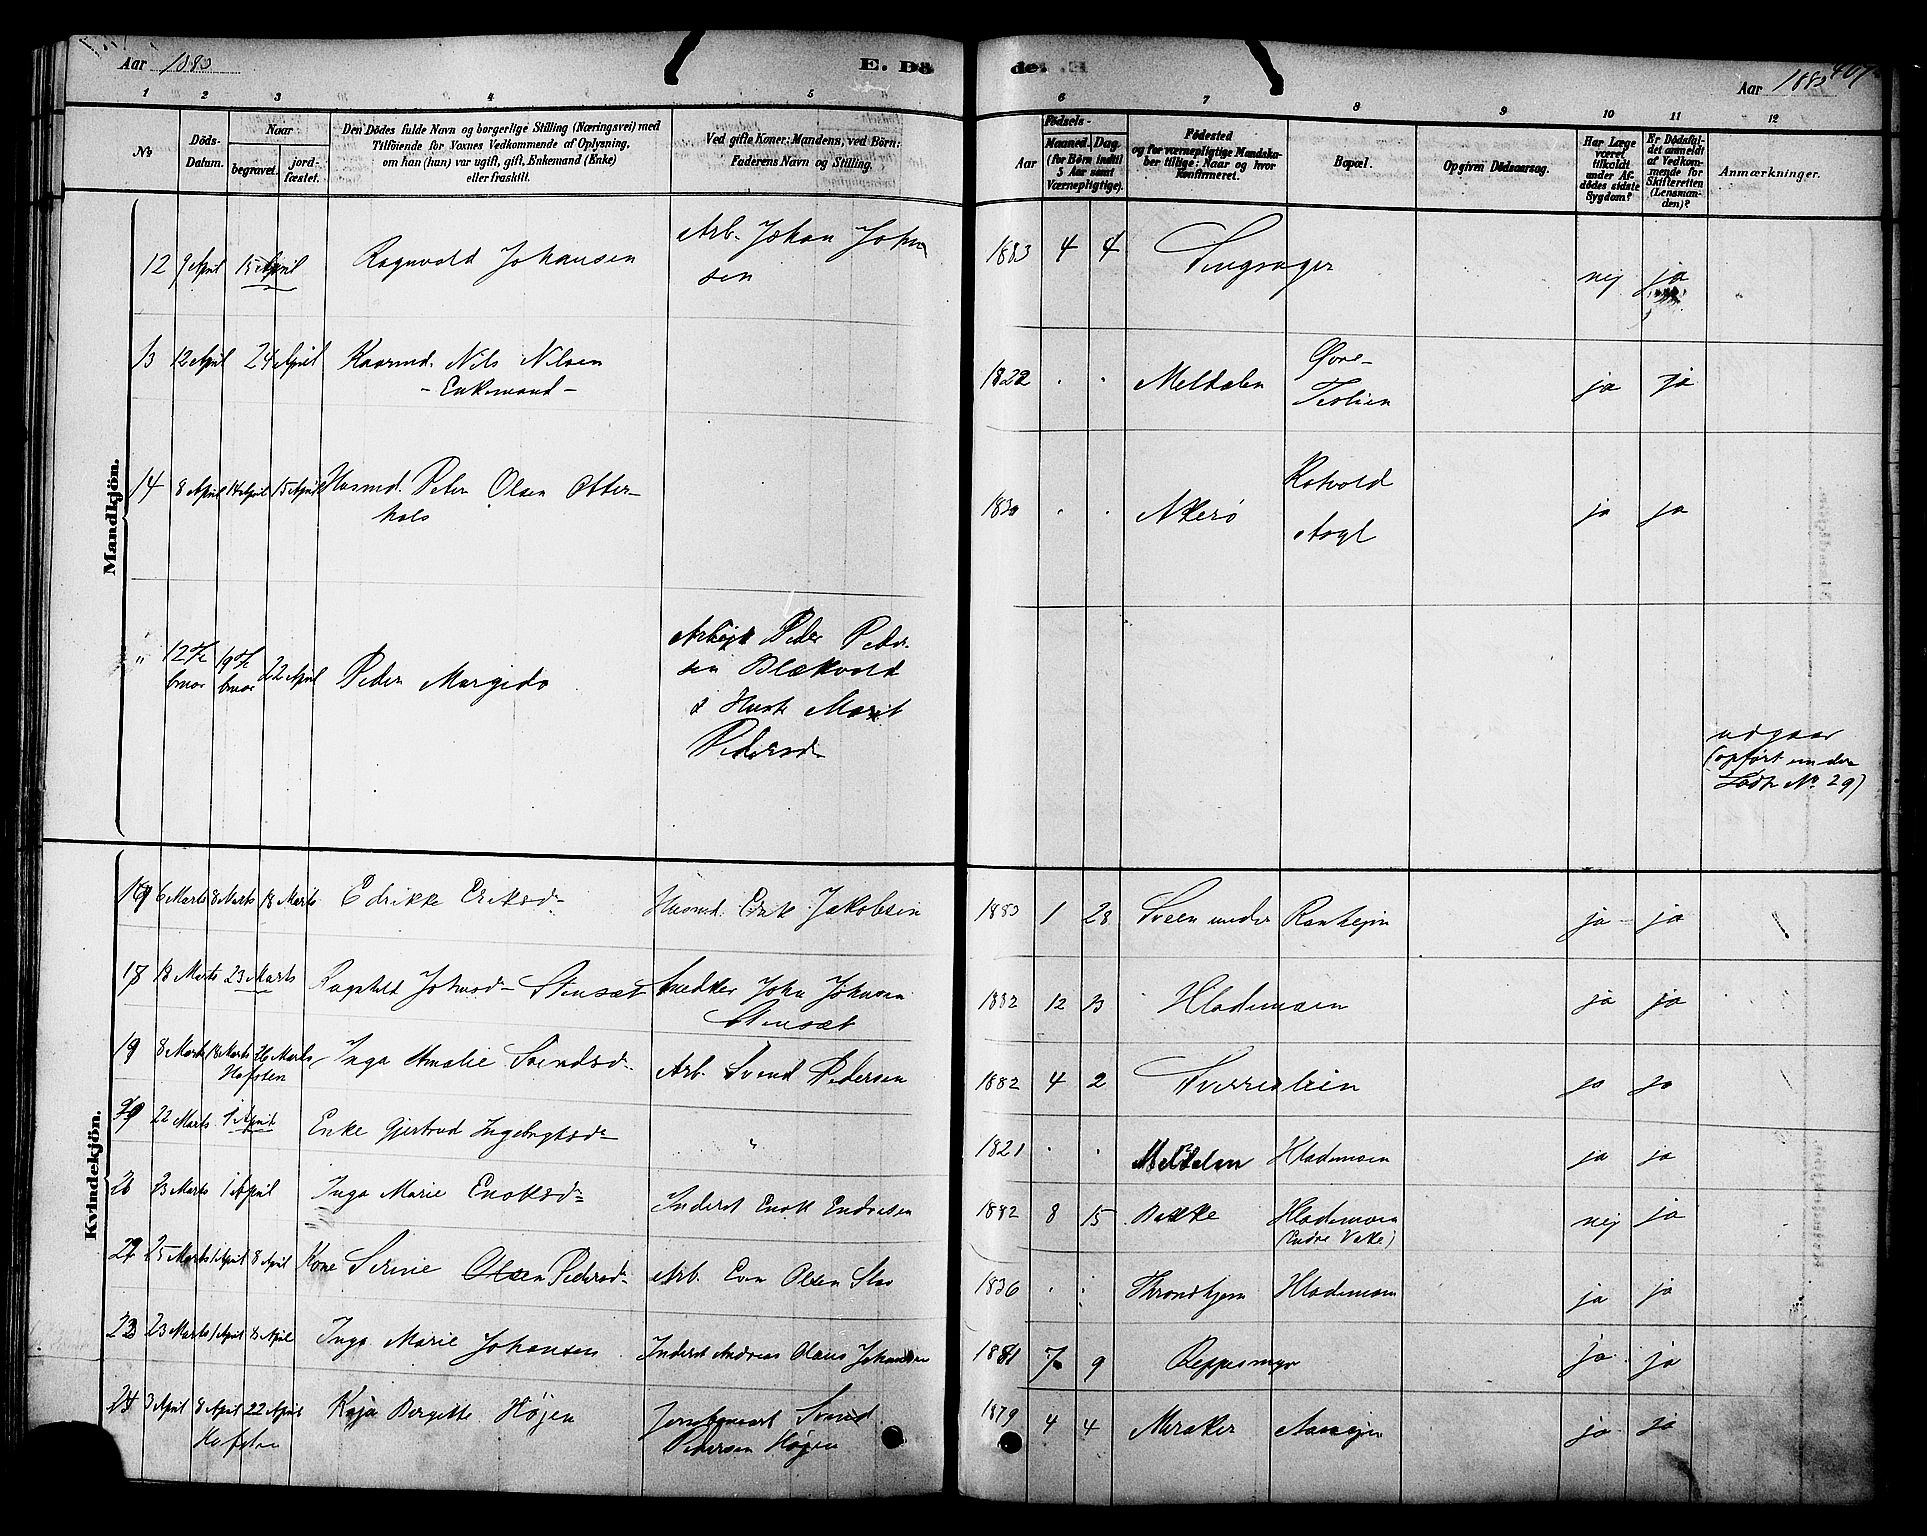 Aar 1883
E. Dö
de. E
Aar 1883
407
1 2 3 4 5 6 7 8 9 10 11 12
No
Döds-
Datum.
Naar
begravet.
jord-
fæstet.
Den Dödes fulde Navn og borgerlige Stilling (Næringsvei) med
Tilföiende for Voxnes Vedkommende af Oplysning,
om han (hun) var ugift, gift, Enkemand (Enke)
eller fraskilt.
Ved gifte Koner: Mandens, ved Börn:
Faderens Navn og Stilling.
Födsels-
Aar
Maaned. Dag.
(for Börn indtil
5 Aar samt
Værnepligtige).
Födested
og for værnepligtige Mandska-
ber tillige: Naar og hvor
konfirmeret.
Bopæl.
Opgiven Dödsaarsag.
Har Læge
været
tilkaldt
under Af-
dödes sidste
Sygdom?
Er Dödsfal-
det anmeldt
af Vedkom-
mende for
Skifteretten
(Lensman-
den)?
Anmærkninger.
Mandkjön.
12 9 April 15 April Ragnvald Johansen Arb. Johan John
sen
1883 4 4 Singsager nej ja
13 12 April 24 April Kaarmd. Nils Nilsen
- Enkemand -
1822 . . Meldalen Øvre-
ja ja
14 8 April 14 April 15 April Husmd. Peter Olsen Otter-
hals
1830 . . Akerö Rotvold
Asyl ja ja
" 12 Fe
bruar 19 Fe
bruar 22 April Peder Margido
Arbejd Peder Peder-
sen Blækvold
& Hustr Marit
Pedersd.
udgaar
(opført under
Födte No 29)
Kvindekjön.
6 Marts 8 Marts 18 Marts Edrikke Eriksd. Husmd. Erik Jakobsen
1883 1 28 Sveen under Ranhejm ja ja
18 18 Marts 23 Marts Ragnhild Johnsd. Stensæt Snedker John Johnsen
Stensæt
1882 12 13 Hlademoen ja ja
19 8 Marts 18 Marts 26 Marts Inga Amalie Svendsd. Arb. Svend Pedersen
Hafsten
1882 4 2 Sverreslien ja ja
22 Marts 1 April Enke Gjertrud Ingebrigtsd. "
1821 . . Meldalen Hlademoen ja ja
23 Marts 1 April Inga Marie Enoksd. Inderst Enok Endresen
1882 8 15 Bakke Hlademoen nej ja
25 Marts 1 April 8 April Kone Serine Olsen Pedersd. Arb. Olsen
1836 . . Throndhjem Hlademoen ja ja
23 Marts 1 April 8 April Inga Marie Johansen Inderst Andreas Olaus Johansen
1881 7 9 Reppesmyr ja ja
24 3 April 8 April 22 April Kaja Bergitte Höjen Svend
Hafsten
Pedersen Höjen
1879 4 4 Meraker ja ja